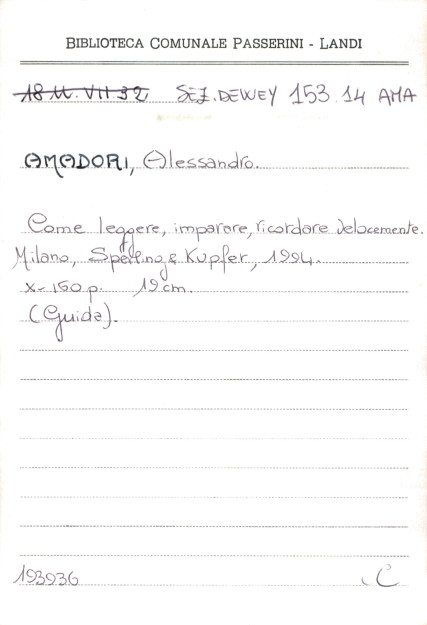 BIBLIOTECA COMUNALE PASSERINI - LANDI
18 M. VII 32 SEZ. DEWEY 153.14 AMA
AMADORI, Alessandro.
Come leggere, imparare, ricordare velocemente.
Milano, Sperling & Kupfer, 1994.
X-160 p. 19 cm.
(Guide).
193936